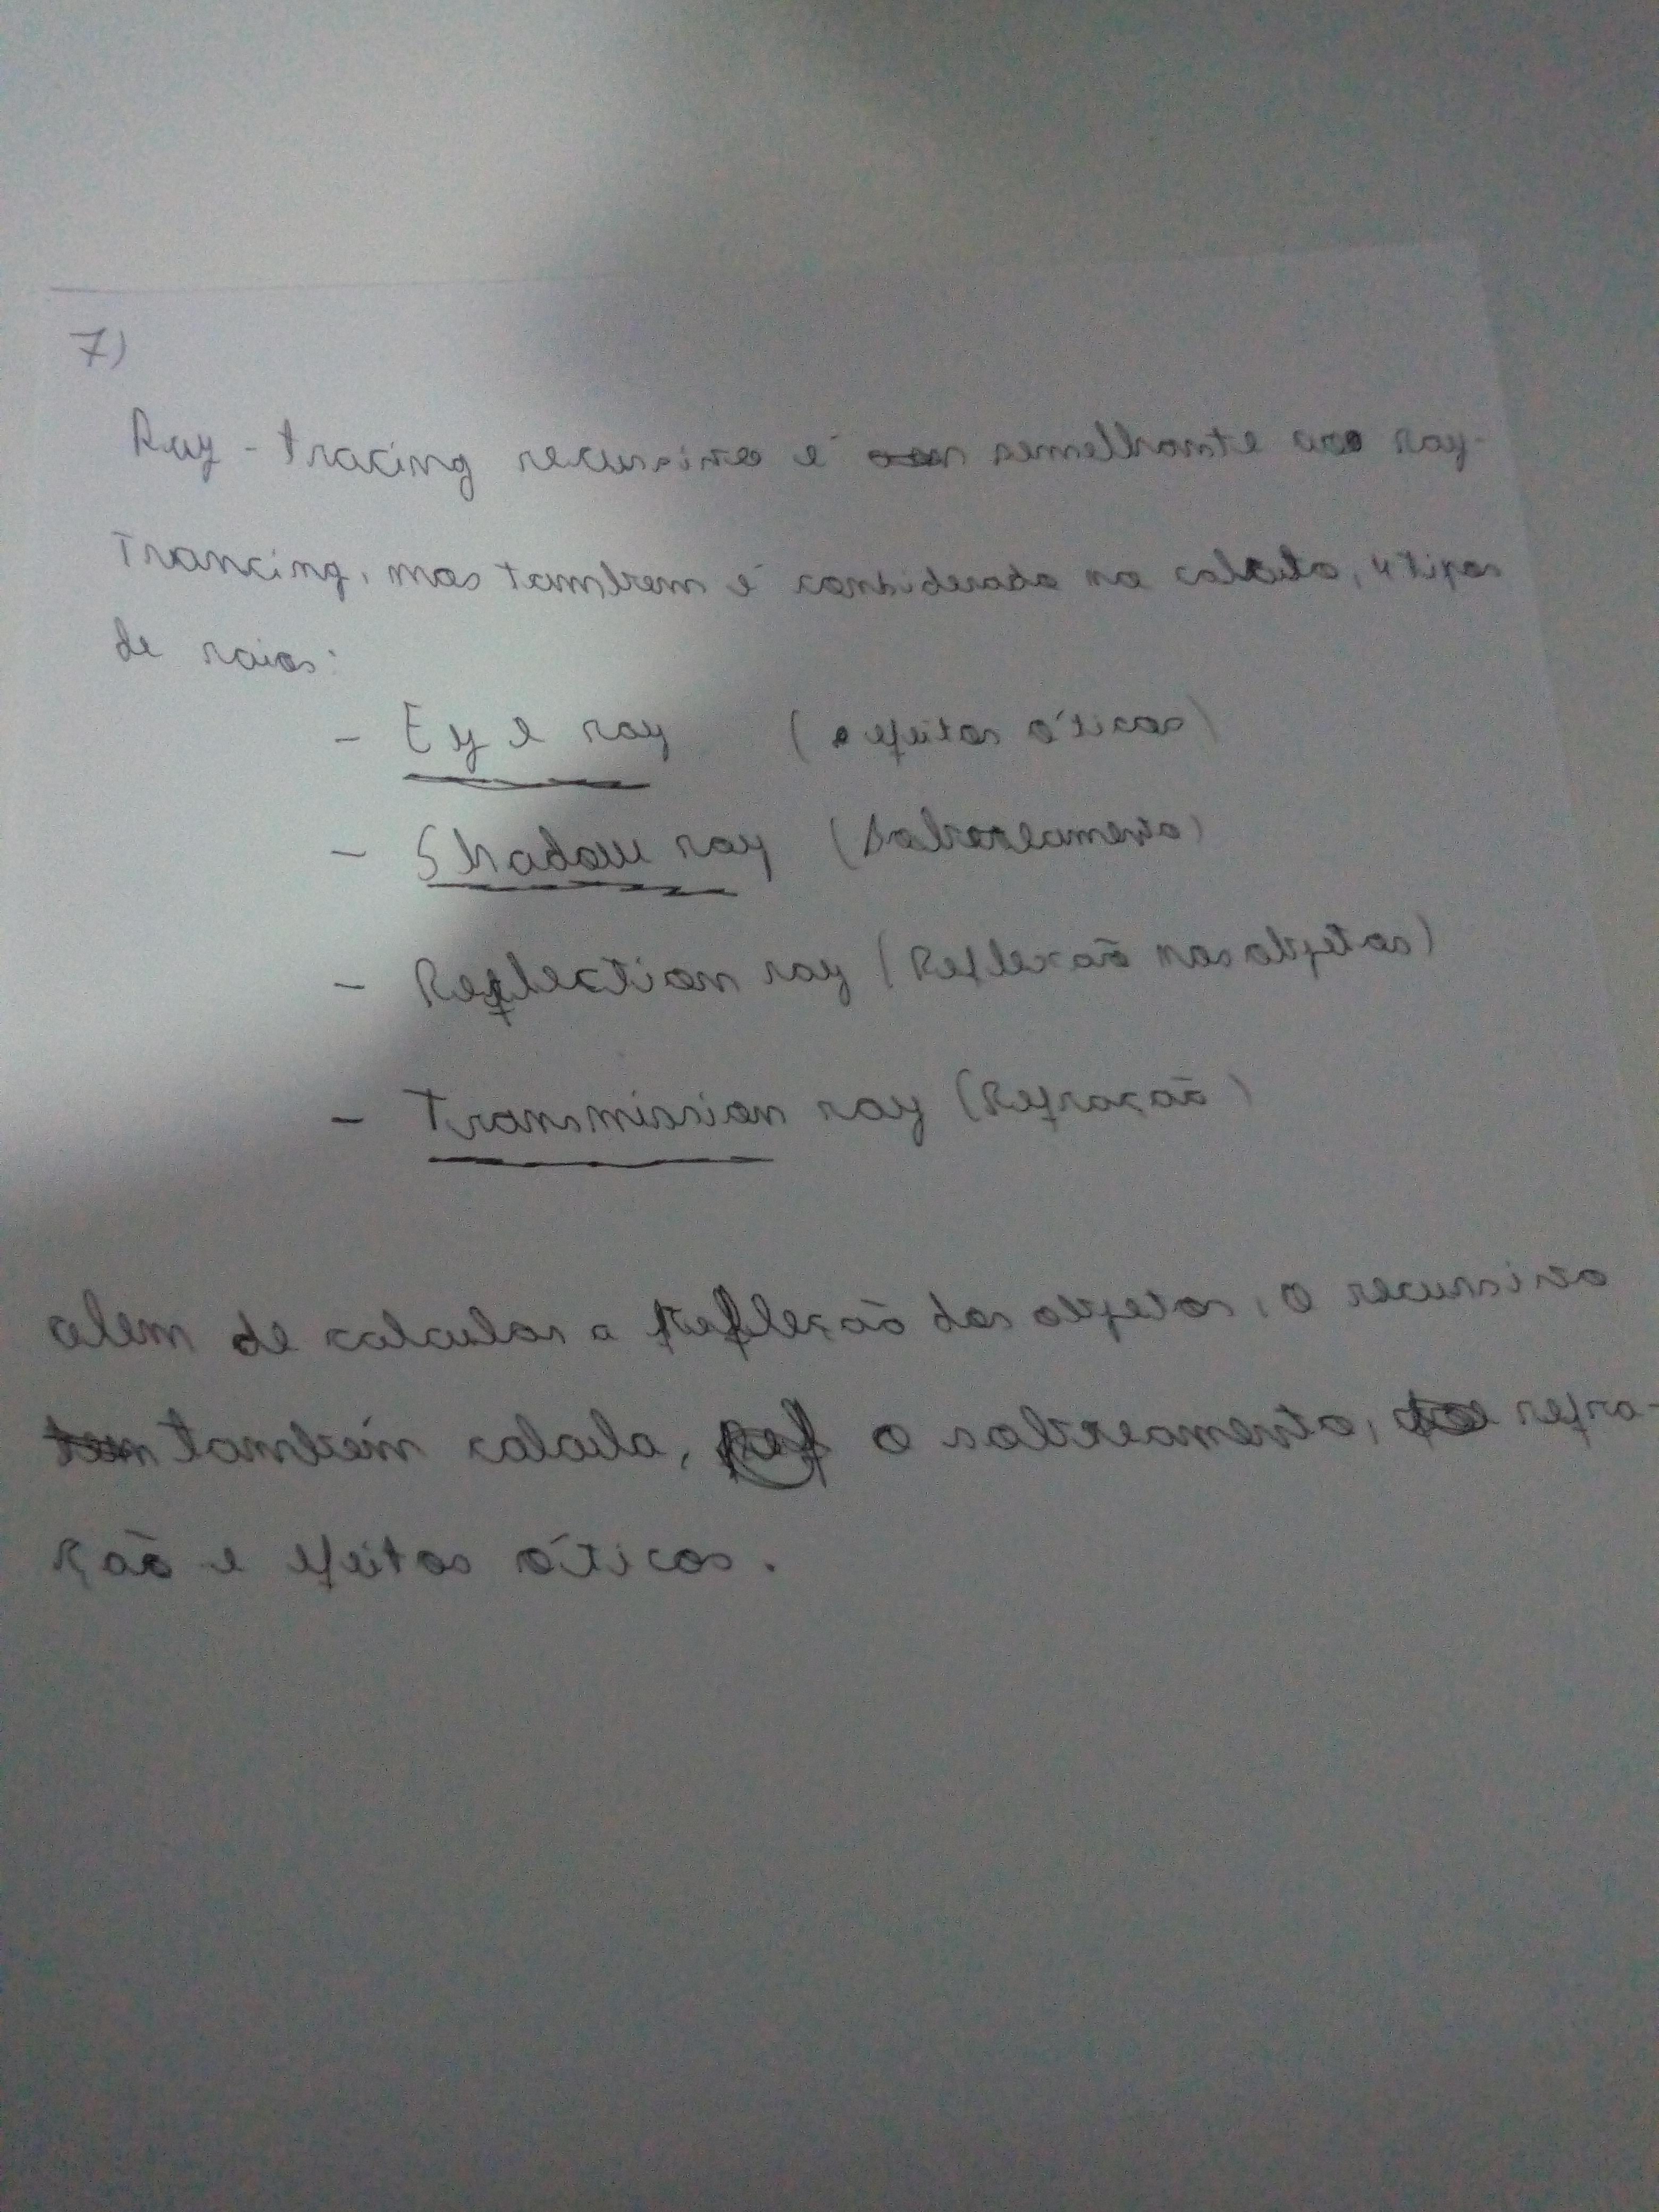 7)
Ray-tracing recursivo é semelhante ao ray-
Trancing, mas tambem é considerado no calculo, 4 tipos
de raios:
- Eye ray (efeitos óticos)
- Shadow ray (Sobreamento)
- Reflection ray (Reflexão nos objetos)
- Transmission ray (Refração)
alem de calcular a reflexão dos objetos, o recursivo
também calcula, o sobreamento, refra-
ção e efeitos óticos.